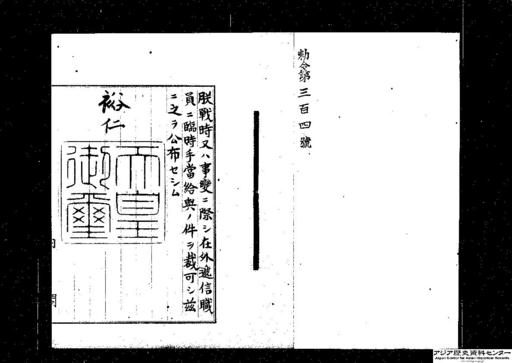 勅令第三百四號
朕戰時又ハ事變ニ際シ在外遞信職
員ニ臨時手當給與ノ件ヲ裁可シ茲
ニ之ヲ公布セシム
裕仁
天皇
御璽
アジア歴史資料センター
Japan Center for Asian Historical Records